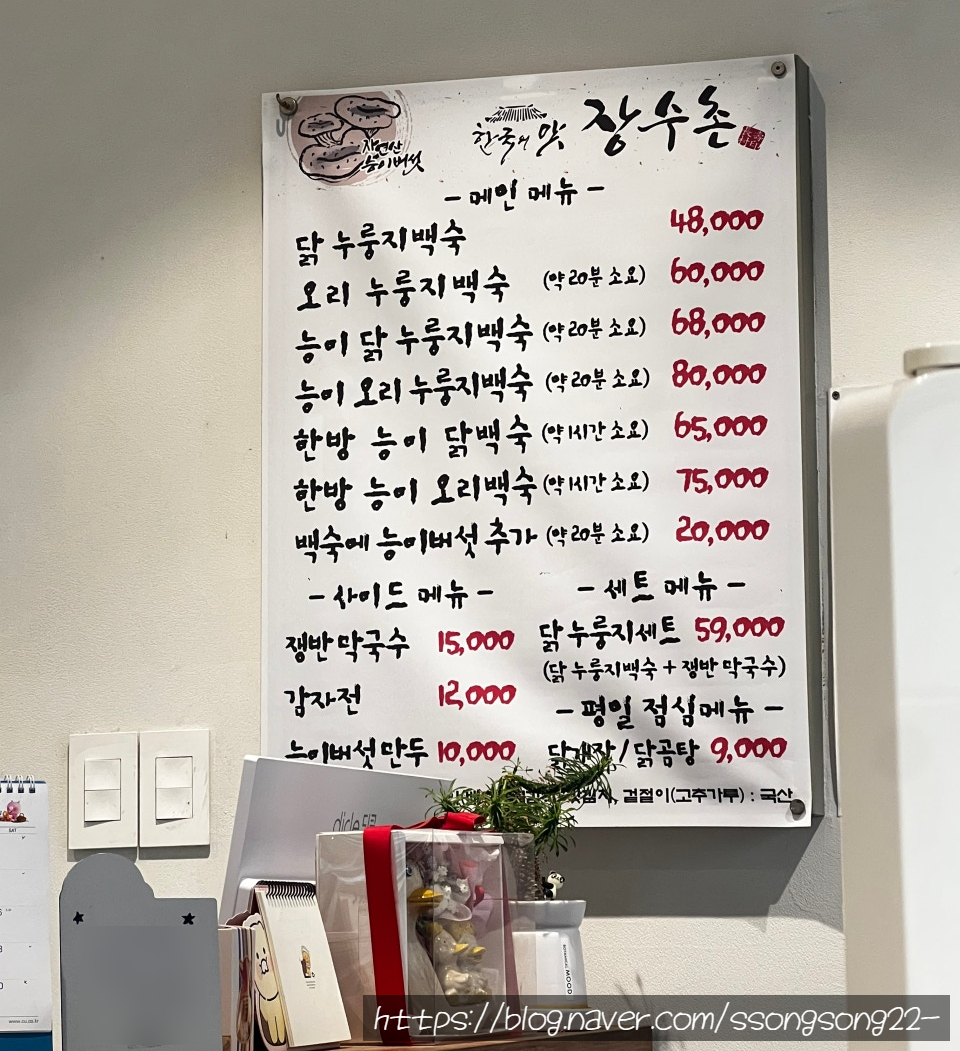 자연산
능이버섯
한국의 맛 장수촌
- 메인 메뉴 -
닭 누룽지백숙 48,000
오리 누룽지백숙 (약 20분 소요) 60,000
능이 닭 누룽지백숙 (약 20분 소요) 68,000
능이 오리 누룽지백숙 (약 20분 소요) 80,000
한방 능이 닭백숙 (약 1시간 소요) 65,000
한방 능이 오리백숙 (약 1시간 소요) 75,000
백숙에 능이버섯 추가 (약 20분 소요) 20,000
- 사이드 메뉴 -
쟁반 막국수 15,000
감자전 12,000
능이버섯 만두 10,000
- 세트 메뉴 -
닭 누룽지세트 59,000
(닭 누룽지백숙 + 쟁반 막국수)
- 평일 점심메뉴 -
닭개장 / 닭곰탕 9,000
겉절이(고추가루) : 국산
dicle 디클
SAT
www.cu.co.kr
MOOD
https://blog.naver.com/ssongsong22-